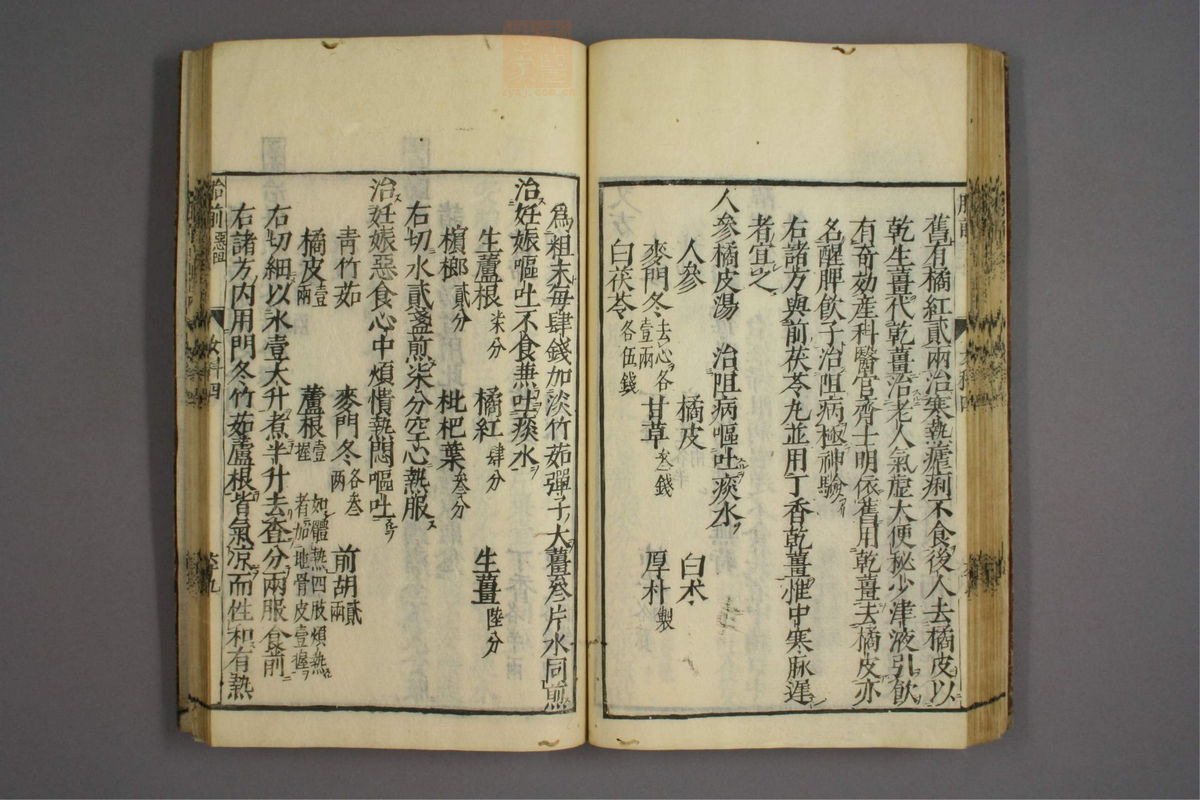 舊有橘紅貳兩治寒熱瘧痢不食後人去橘皮以
乾生薑代乾薑治老人氣虛大便秘少津液引飲
有奇効産科醫官齊士明依舊用乾薑去橘皮亦
名醒脾飲子治阻病極神驗
右諸方與前茯苓丸並用丁香乾薑惟中寒脉遲
者宜之
人參橘皮湯 治阻病嘔吐痰水
人參 橘皮 白朮
麥門冬去心各壹兩 甘草叁錢 厚朴製
白茯苓各伍錢
爲粗末每肆錢加淡竹茹彈子大薑叁片水同煎
治妊娠嘔吐不食兼吐痰水
生蘆根柒分 橘紅肆分 生薑陸分
檳榔貳分 枇杷葉叁分
右切水貳盞煎柒分空心熱服
治妊娠惡食心中煩憒熱悶嘔吐
青竹茹 麥門冬各叁兩 前胡貳兩
橘皮壹兩 蘆根壹握 如體熱四肢煩熱者加地骨皮壹握
右切細以水壹大升煮半升去查分兩服食前
右諸方內用門冬竹茹蘆根皆氣凉而性和有熱
胎前惡阻 女科四